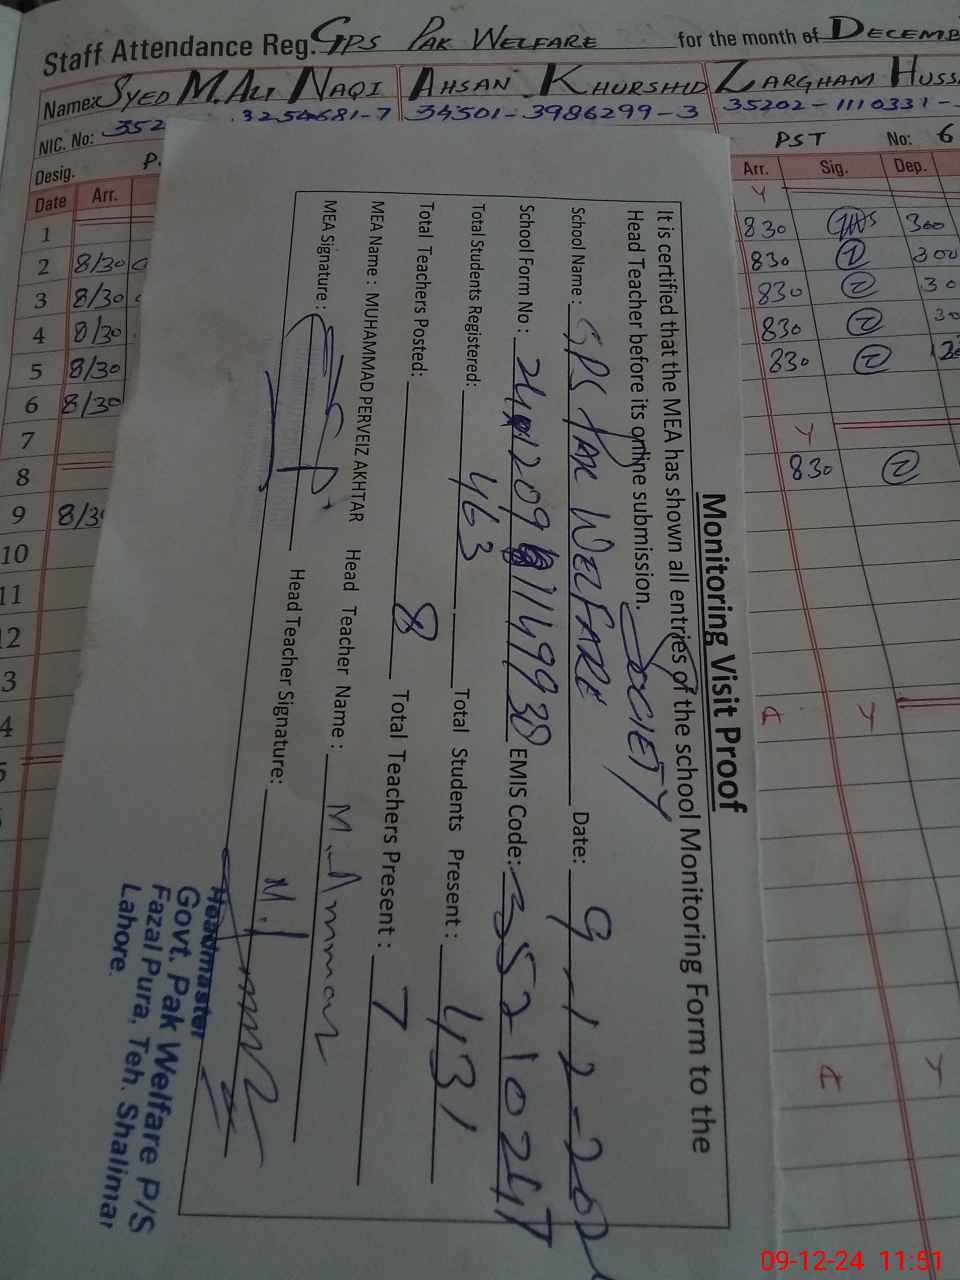 Staff Attendance Reg. GPS PAK WELFARE for the month of DECEMB
Name: SYED M. ALI NAQI AHSAN KHURSHID ZARGHAM HUSS
NIC. No: 352 3254681-7 34501-3986299-3 35202-1110331-
Desig. P. PST No: 6
Date Arr. Arr. Sig. Dep.
Y
1 830 300
2 8/30 830 300
3 8/30 830 30
4 8/30 830 30
5 8/30 830
6 8/30
7 Y
8 830
9 8/30
10
11
12
3
4
Monitoring Visit Proof
It is certified that the MEA has shown all entries of the school Monitoring Form to the
Head Teacher before its online submission.
SOCIETY
School Name: GPS PAK WELFARE Date: 9-12-202
School Form No: EMIS Code: 35210247
Total Students Registered: 463 Total Students Present: 431
Total Teachers Posted: 8 Total Teachers Present: 7
MEA Name: MUHAMMAD PERVEIZ AKHTAR Head Teacher Name: M. Ammar
MEA Signature: Head Teacher Signature:
Headmaster
Govt. Pak Welfare P/S
Fazal Pura, Teh. Shalimar
Lahore.
09-12-24 11:51